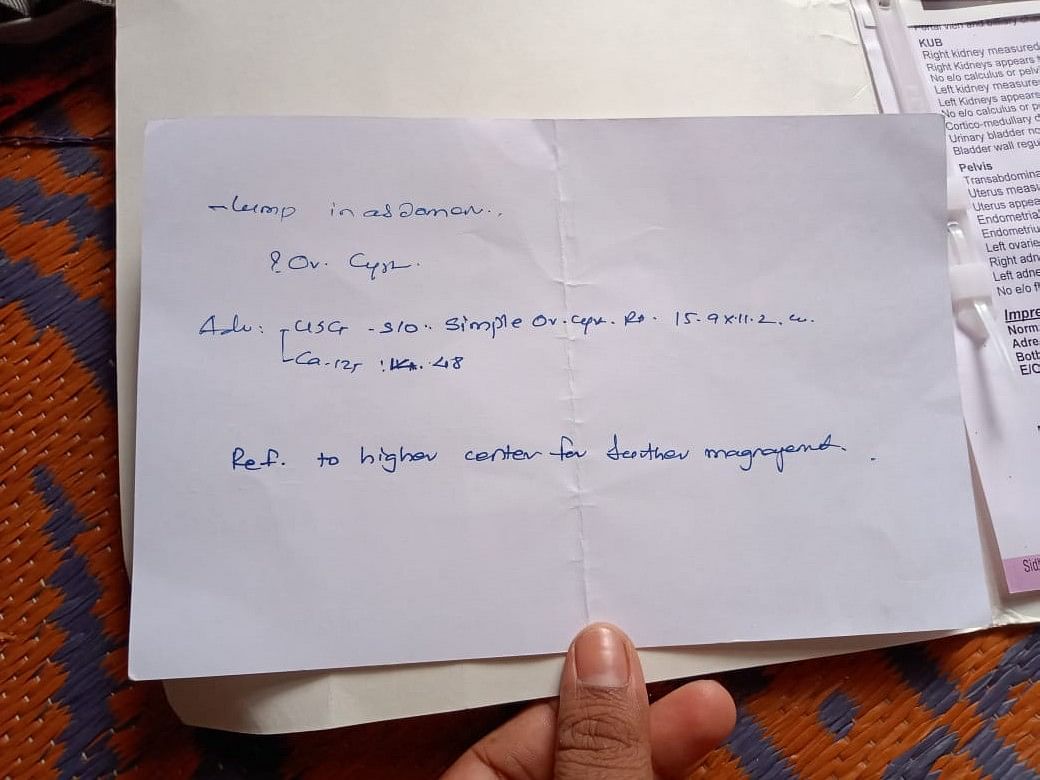 - Lump in abdomen..
? Ov. Cyst.
Adv: USG - S/O.. Simple Ov. Cyst. Rt. 15.9 x 11.2. cm.
Ca-125 : 48
Ref. to higher center for further managment.
KUB
Right kidney measured
Right Kidneys appears
No e/o calculus or pelv
Left kidney measure
Left Kidneys appears
No e/o calculus or p
Cortico-medullary d
Urinary bladder no
Bladder wall regu
Pelvis
Transabdomina
Uterus meas
Uterus appea
Endometria
Endometriu
Left ovarie
Right adn
Left adne
No e/o f
Impre
Norm
Adre
Bot
E/C
Sid